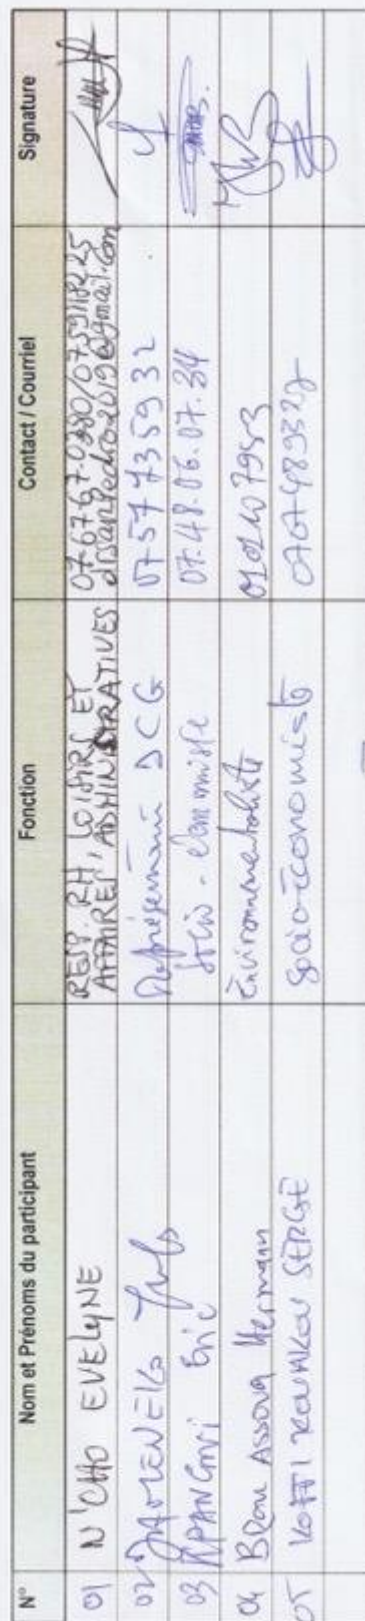 N° Nom et Prénoms du participant Fonction Contact / Courriel Signature
01 N'CHO EVELYNE RESP. RH, LOISIRS ET AFFAIRES ADMINISTRATIVES 07-67-67-0280/0759118225
drsanpedro2019@gmail.com
02 Représentant DCG 0757735932
03 KPANGNI Eric Socio-économiste 07.48.06.07.34
04 BROU ASSOUA Hermann Environnementaliste 0101407953
05 KOFFI KOUAKOU SERGE Socio-économiste